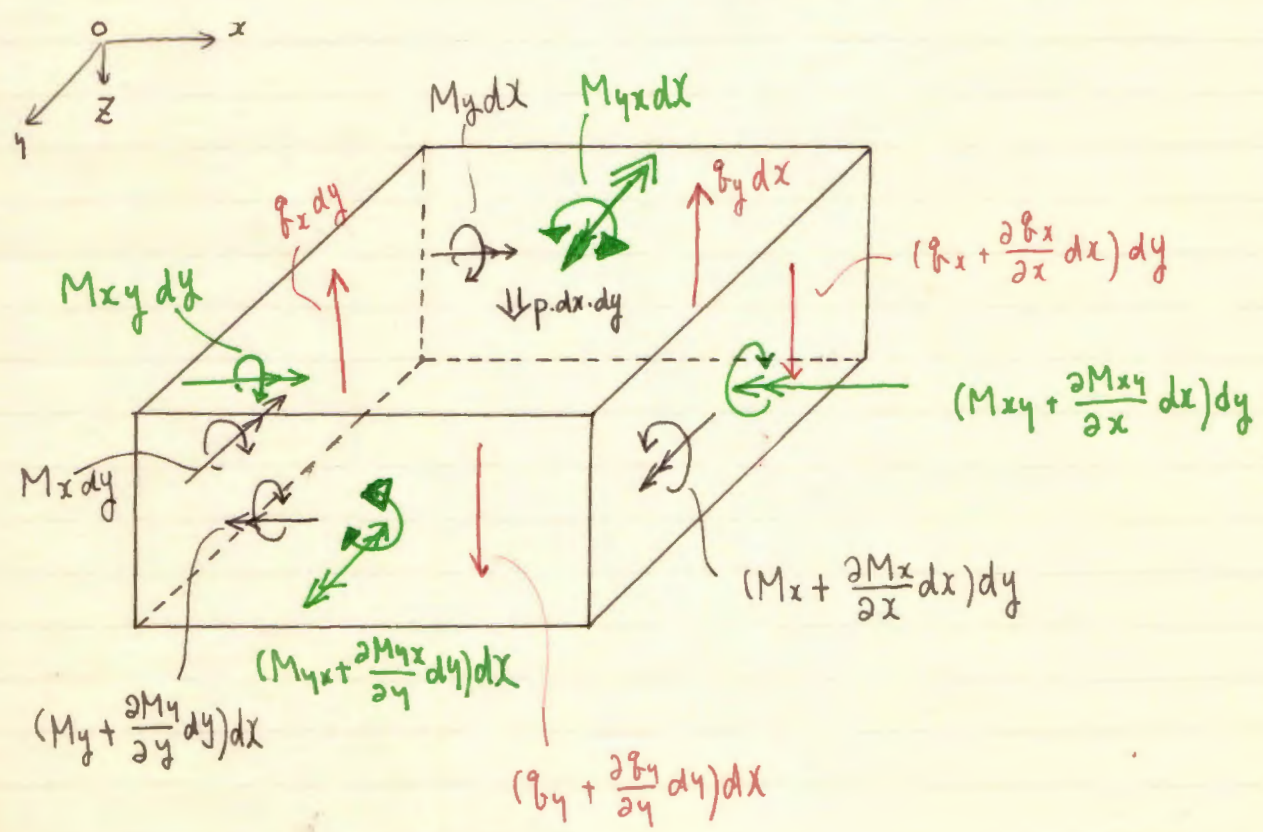 O
x
y
Z
My dx
Myx dx
qx dy
qy dx
(qx + ∂qx/∂x dx) dy
Mxy dy
p.dx.dy
(Mxy + ∂Mxy/∂x dx) dy
Mx dy
(Mx + ∂Mx/∂x dx) dy
(Myx + ∂Myx/∂y dy) dx
(My + ∂My/∂y dy) dx
(qy + ∂qy/∂y dy) dx